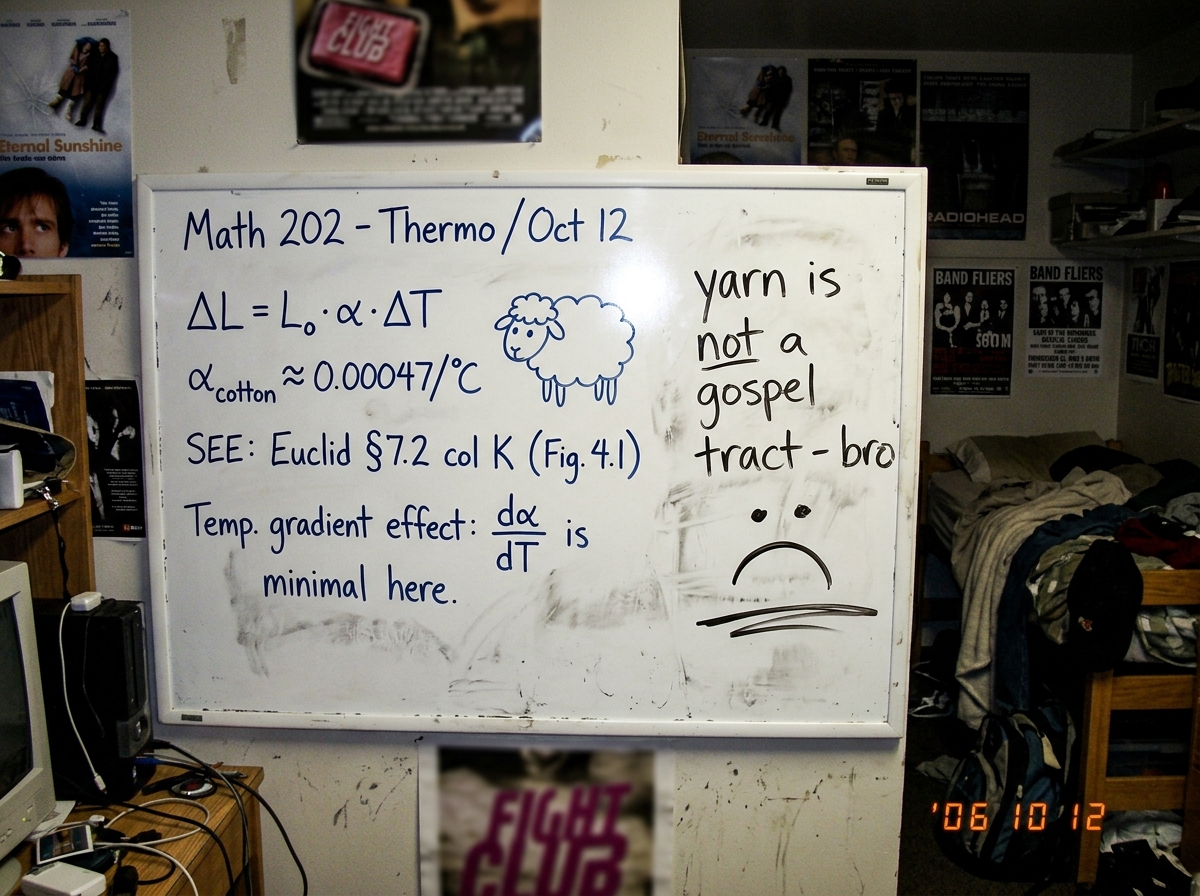 Eternal Sunshine
FIGHT
CLUB
Eternal Sunshine
RADIOHEAD
Math 202 – Thermo / Oct 12
ΔL = L₀ · α · ΔT
α cotton ≈ 0.00047/°C
SEE: Euclid §7.2 col K (Fig. 4.1)
Temp. gradient effect: dα/dT is
minimal here.
yarn is
not a
gospel
tract – bro
BAND FLIERS
BAND FLIERS
FIGHT
CLUB
'06 10 12